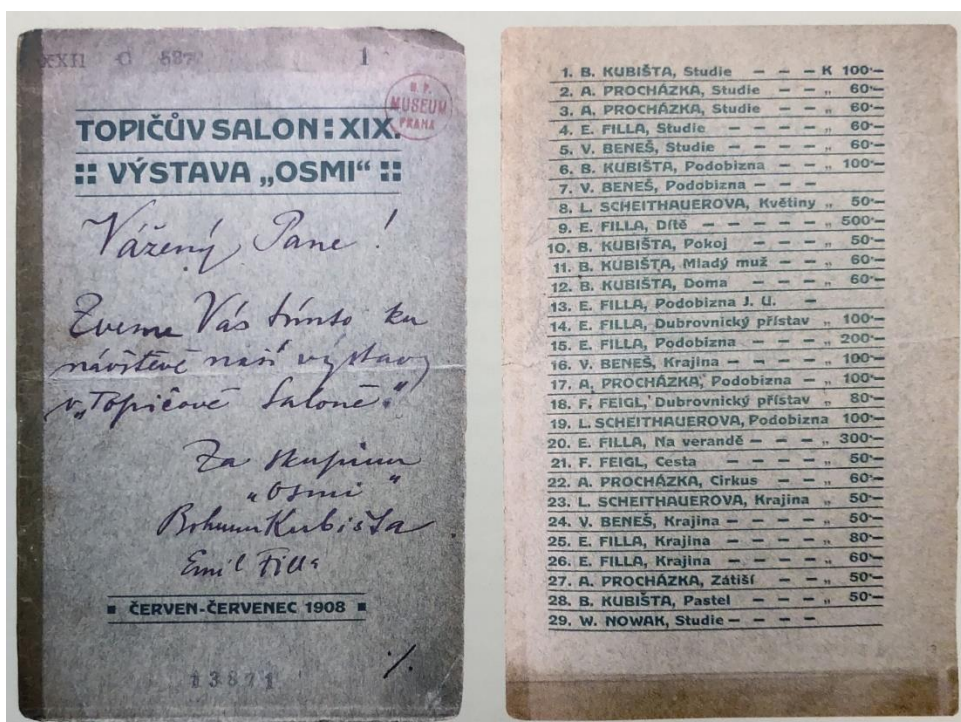 XXII C 587
1
U. P.
MUSEUM
PRAHA
TOPIČŮV SALON : XIX.
:: VÝSTAVA „OSMI“ ::
Vážený Pane!
Zveme Vás tímto ku
návštěvě naší výstavy
v „Topičově Saloně.“
Za skupinu
„Osmi“
Bohumil Kubišta
Emil Filla
▪ ČERVEN-ČERVENEC 1908 ▪
13871
1. B. KUBIŠTA, Studie – – – K 100·–
2. A. PROCHÁZKA, Studie – – „ 60·–
3. A. PROCHÁZKA, Studie – – „ 60·–
4. E. FILLA, Studie – – – – „ 60·–
5. V. BENEŠ, Studie – – – „ 60·–
6. B. KUBIŠTA, Podobizna – – „ 100·–
7. V. BENEŠ, Podobizna – – –
8. L. SCHEITHAUEROVA, Květiny „ 50·–
9. E. FILLA, Dítě – – – – – „ 500·–
10. B. KUBIŠTA, Pokoj – – – „ 50·–
11. B. KUBIŠTA, Mladý muž – – „ 60·–
12. B. KUBIŠTA, Doma – – – „ 60·–
13. E. FILLA, Podobizna J. U. –
14. E. FILLA, Dubrovnický přístav „ 100·–
15. E. FILLA, Podobizna – – – „ 200·–
16. V. BENEŠ, Krajina – – – „ 100·–
17. A. PROCHÁZKA, Podobizna – „ 100·–
18. F. FEIGL, Dubrovnický přístav „ 80·–
19. L. SCHEITHAUEROVA, Podobizna 100·–
20. E. FILLA, Na verandě – – – „ 300·–
21. F. FEIGL, Cesta – – – – „ 50·–
22. A. PROCHÁZKA, Cirkus – – „ 60·–
23. L. SCHEITHAUEROVA, Krajina „ 50·–
24. V. BENEŠ, Krajina – – – – „ 50·–
25. E. FILLA, Krajina – – – – „ 80·–
26. E. FILLA, Krajina – – – – „ 60·–
27. A. PROCHÁZKA, Zátiší – – „ 50·–
28. B. KUBIŠTA, Pastel – – – „ 50·–
29. W. NOWAK, Studie – – – –